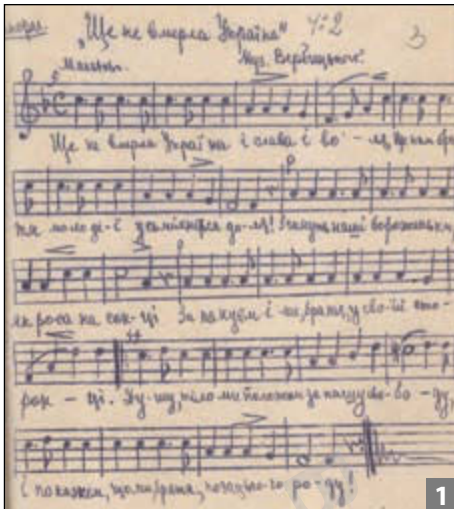 "Ще не вмерла Україна" 4:2 3
Муз. Вербицького.
Ще не вмерла Україна і слава і во - ля, Ще нам бра
тя молоді-ї усміхнеться до-ля! Згинуть наші вороженьки,
як роса на сон-ці За пануєм і ми, браття, у сво-їй сто-
рон - ці. Ду-шу, тіло ми положим за нашу сво-бо - ду,
і покажем, що ми, браття, козацько-го ро-ду!
1